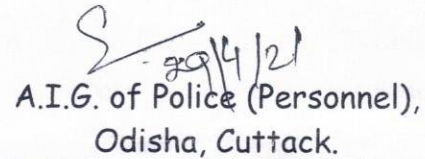 29/4/21
A.I.G. of Police (Personnel),
Odisha, Cuttack.